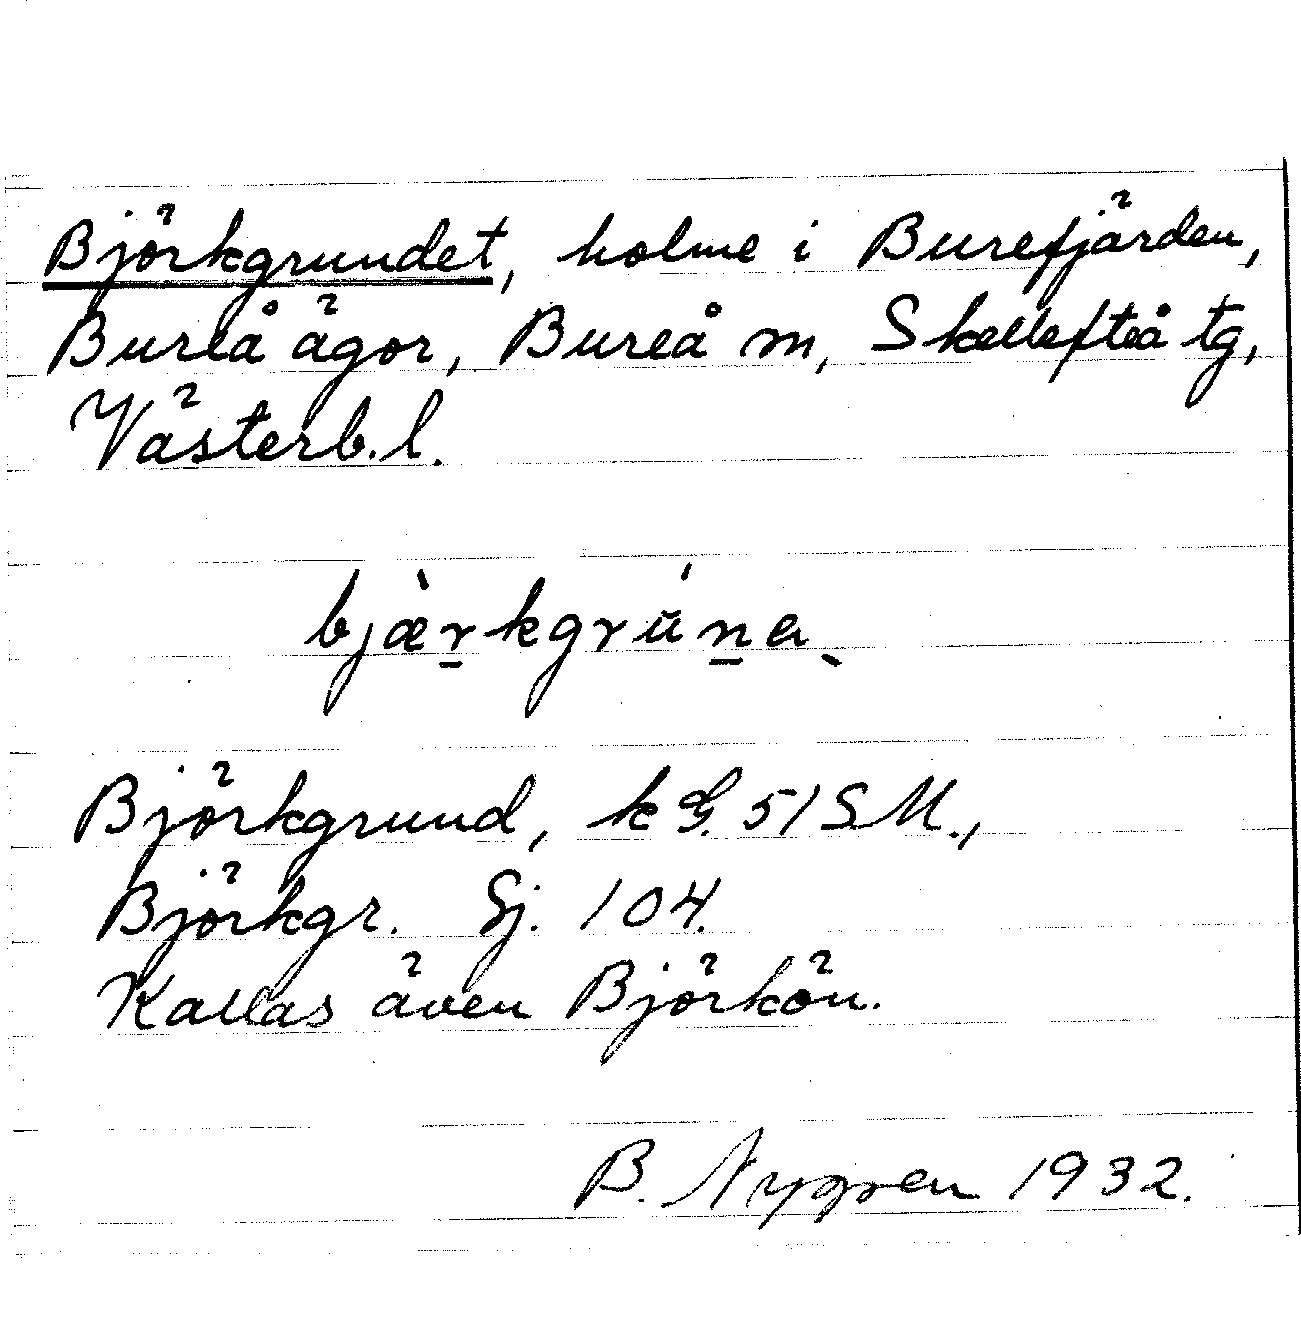 Björkgrundet, holme i Burefjärden,
Bureå ägor, Bureå m, Skellefteå tg,
Västerb. l.
bjæ̀r̠kgrŭ́n̠aˎ
Björkgrund, k G. 51 S.M.,
Björkgr. Sj. 104.
Kallas även Björkön.
B. Nygren 1932.